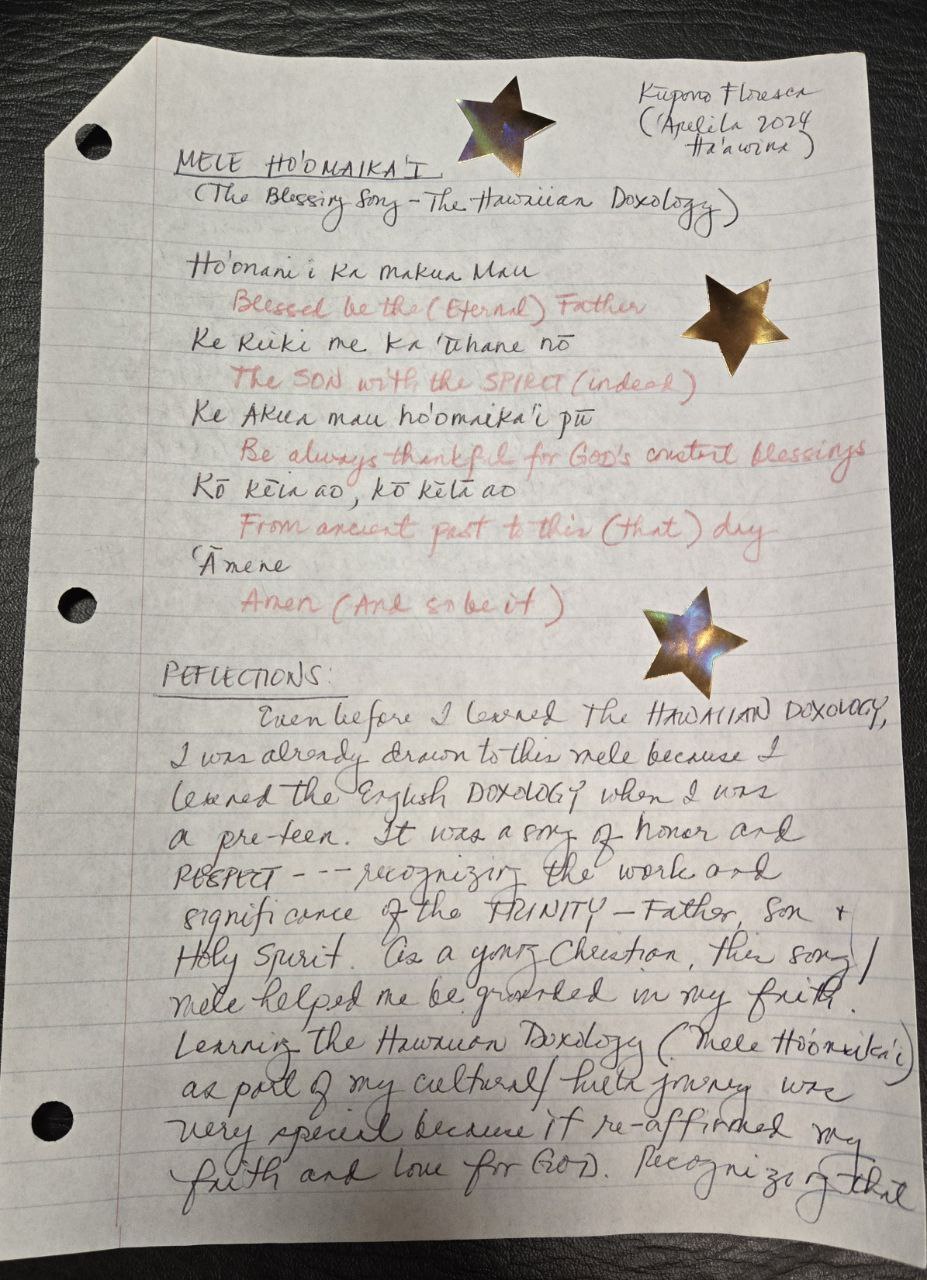 Kūpono Floresca
('Apelila 2024
Ha'awina)
MELE HO'OMAIKA'I
(The Blessing Song - The Hawaiian Doxology)
Ho'onani i ka makua mau
Blessed be the (Eternal) Father
Ke Keiki me ka 'Uhane nō
The SON with the SPIRIT (indeed)
Ke Akua mau ho'omaika'i pū
Be always thankful for GOD's constant blessings
Kō kēia ao, kō kēlā ao
From ancient past to this (that) day
'Āmene
Amen (And so be it)
REFLECTIONS:
Even before I learned The HAWAIIAN DOXOLOGY,
I was already drawn to this mele because I
learned the English DOXOLOGY when I was
a pre-teen. It was a song of honor and
RESPECT --- recognizing the work and
significance of the TRINITY - Father, Son +
Holy Spirit. As a young Christian, this song/
mele helped me be grounded in my faith.
Learning the Hawaiian Doxology (Mele Ho'omaika'i)
as part of my cultural/hula journey was
very special because it re-affirmed my
faith and love for GOD. Recognizing that